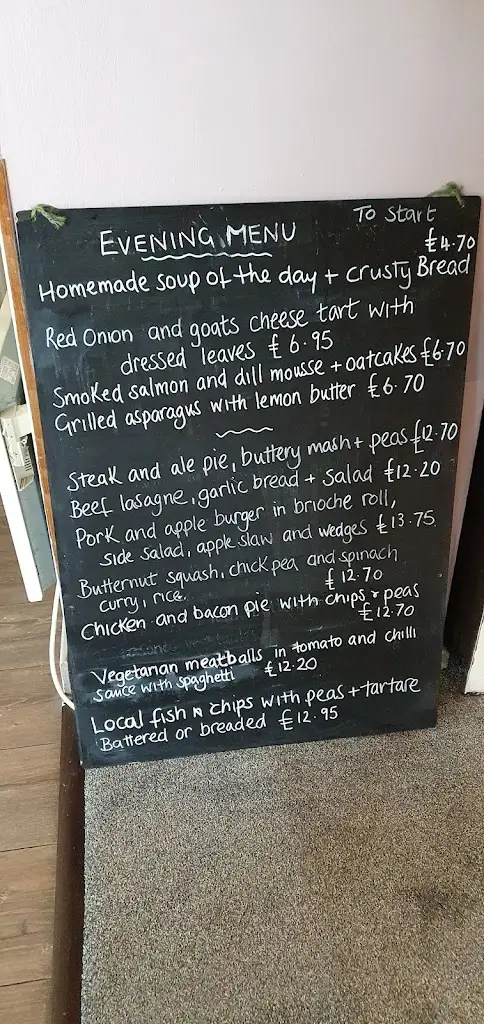 To Start
EVENING MENU
£4.70
Homemade soup of the day + crusty Bread
Red Onion and goats cheese tart with
dressed leaves £6.95
Smoked salmon and dill mousse + oatcakes £6.70
Grilled asparagus with lemon butter £6.70
Steak and ale pie, buttery mash + peas £12.70
Beef lasagne, garlic bread + salad £12.20
Pork and apple burger in brioche roll,
side salad, apple slaw and wedges £13.75
Butternut squash, chick pea and spinach
curry, rice. £12.70
Chicken and bacon pie with chips + peas
£12.70
Vegetarian meatballs in tomato and chilli
sauce with spaghetti £12.20
Local fish n chips with peas + tartare
Battered or breaded £12.95